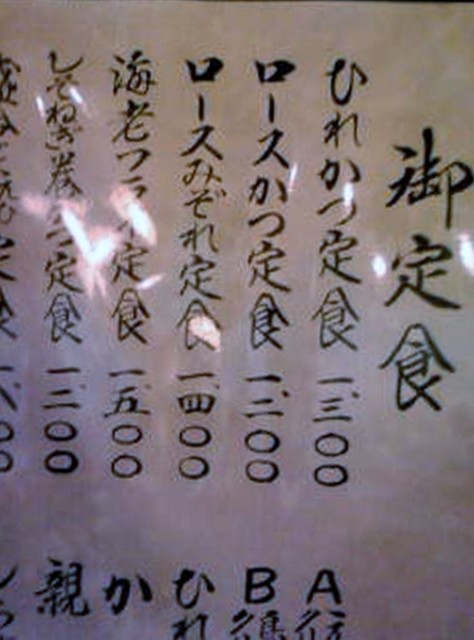 御定食
ひれかつ定食 一、三〇〇
ロースかつ定食 一、二〇〇
ロースみぞれ定食 一、四〇〇
海老フライ定食 一、五〇〇
しそねぎ巻かつ定食 一、二〇〇
定食 一、八〇〇
A
B
ひれ
か
親